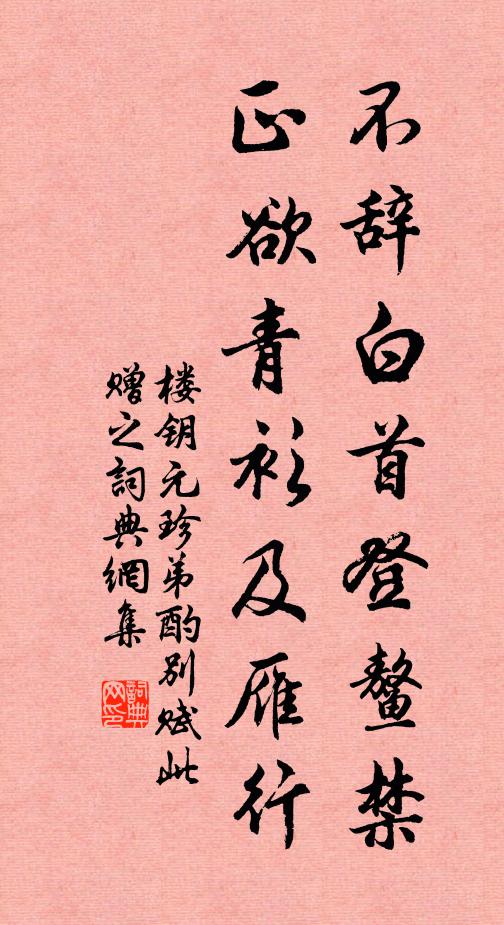 不辞白首登鳌禁
正欲青衫及雁行
楼钥元珍弟酌别赋此
赠之词典網集
詞典
网印